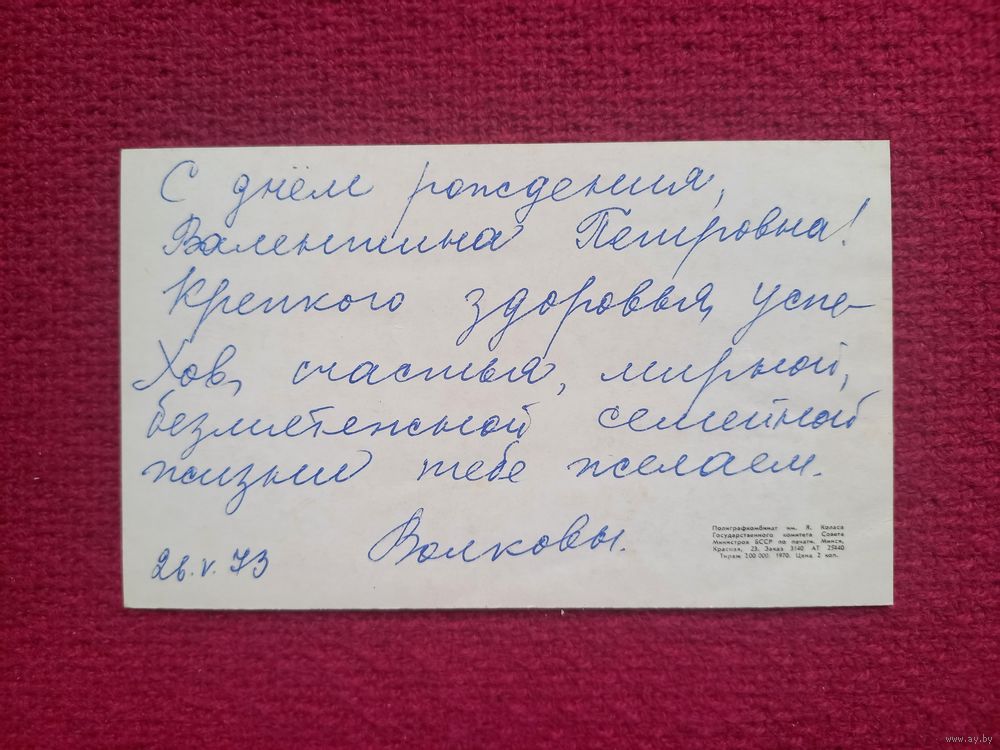 С днём рождения,
Валентина Петровна!
Крепкого здоровья, успе-
хов, счастья, мирной,
безмятежной семейной
жизни тебе желаем.
Волковы.
26.V.73
Полиграфкомбинат им. Я. Коласа
Государственного комитета Совета
Министров БССР по печати. Минск,
Красная, 23. Заказ 3140 АТ 25440
Тираж 200 000. 1970. Цена 2 коп.
www.ay.by